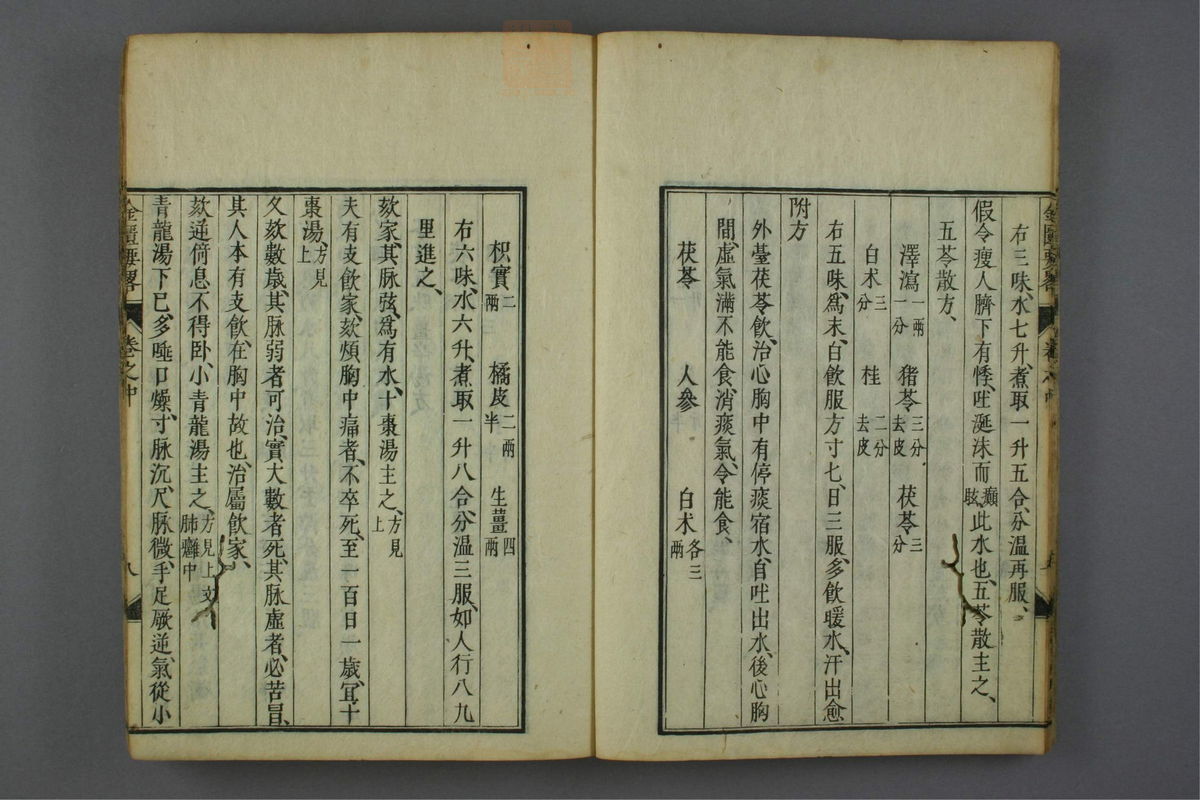 右三味、水七升、煮取一升五合、分溫再服、
假令瘦人臍下有悸、吐涎沫而癲眩、此水也、五苓散主之、
五苓散方、
澤瀉一兩一分 猪苓三分去皮 茯苓三分
白朮三分 桂二分去皮
右五味、爲末、白飲服方寸匕、日三服、多飲暖水、汗出愈
附方
外臺茯苓飲、治心胸中有停痰宿水、自吐出水、後心胸
間、虛氣滿不能食、消痰氣、令能食、
茯苓 人參 白朮各三兩
枳實二兩 橘皮二兩半 生薑四兩
右六味、水六升、煮取一升八合、分溫三服、如人行八九
里進之、
欬家、其脉弦、爲有水、十棗湯主之、方見上
夫有支飲家、欬煩胸中痛者、不卒死、至一百日一歲、宜十
棗湯、方見上
久欬數歲、其脉弱者可治、實大數者死、其脉虛者、必苦冒、
其人本有支飲、在胸中故也、治屬飲家、
欬逆倚息不得卧、小青龍湯主之、方見上文肺癰中
青龍湯下已、多唾口燥、寸脉沉、尺脉微、手足厥逆、氣從小
金匱要略 卷之中 八